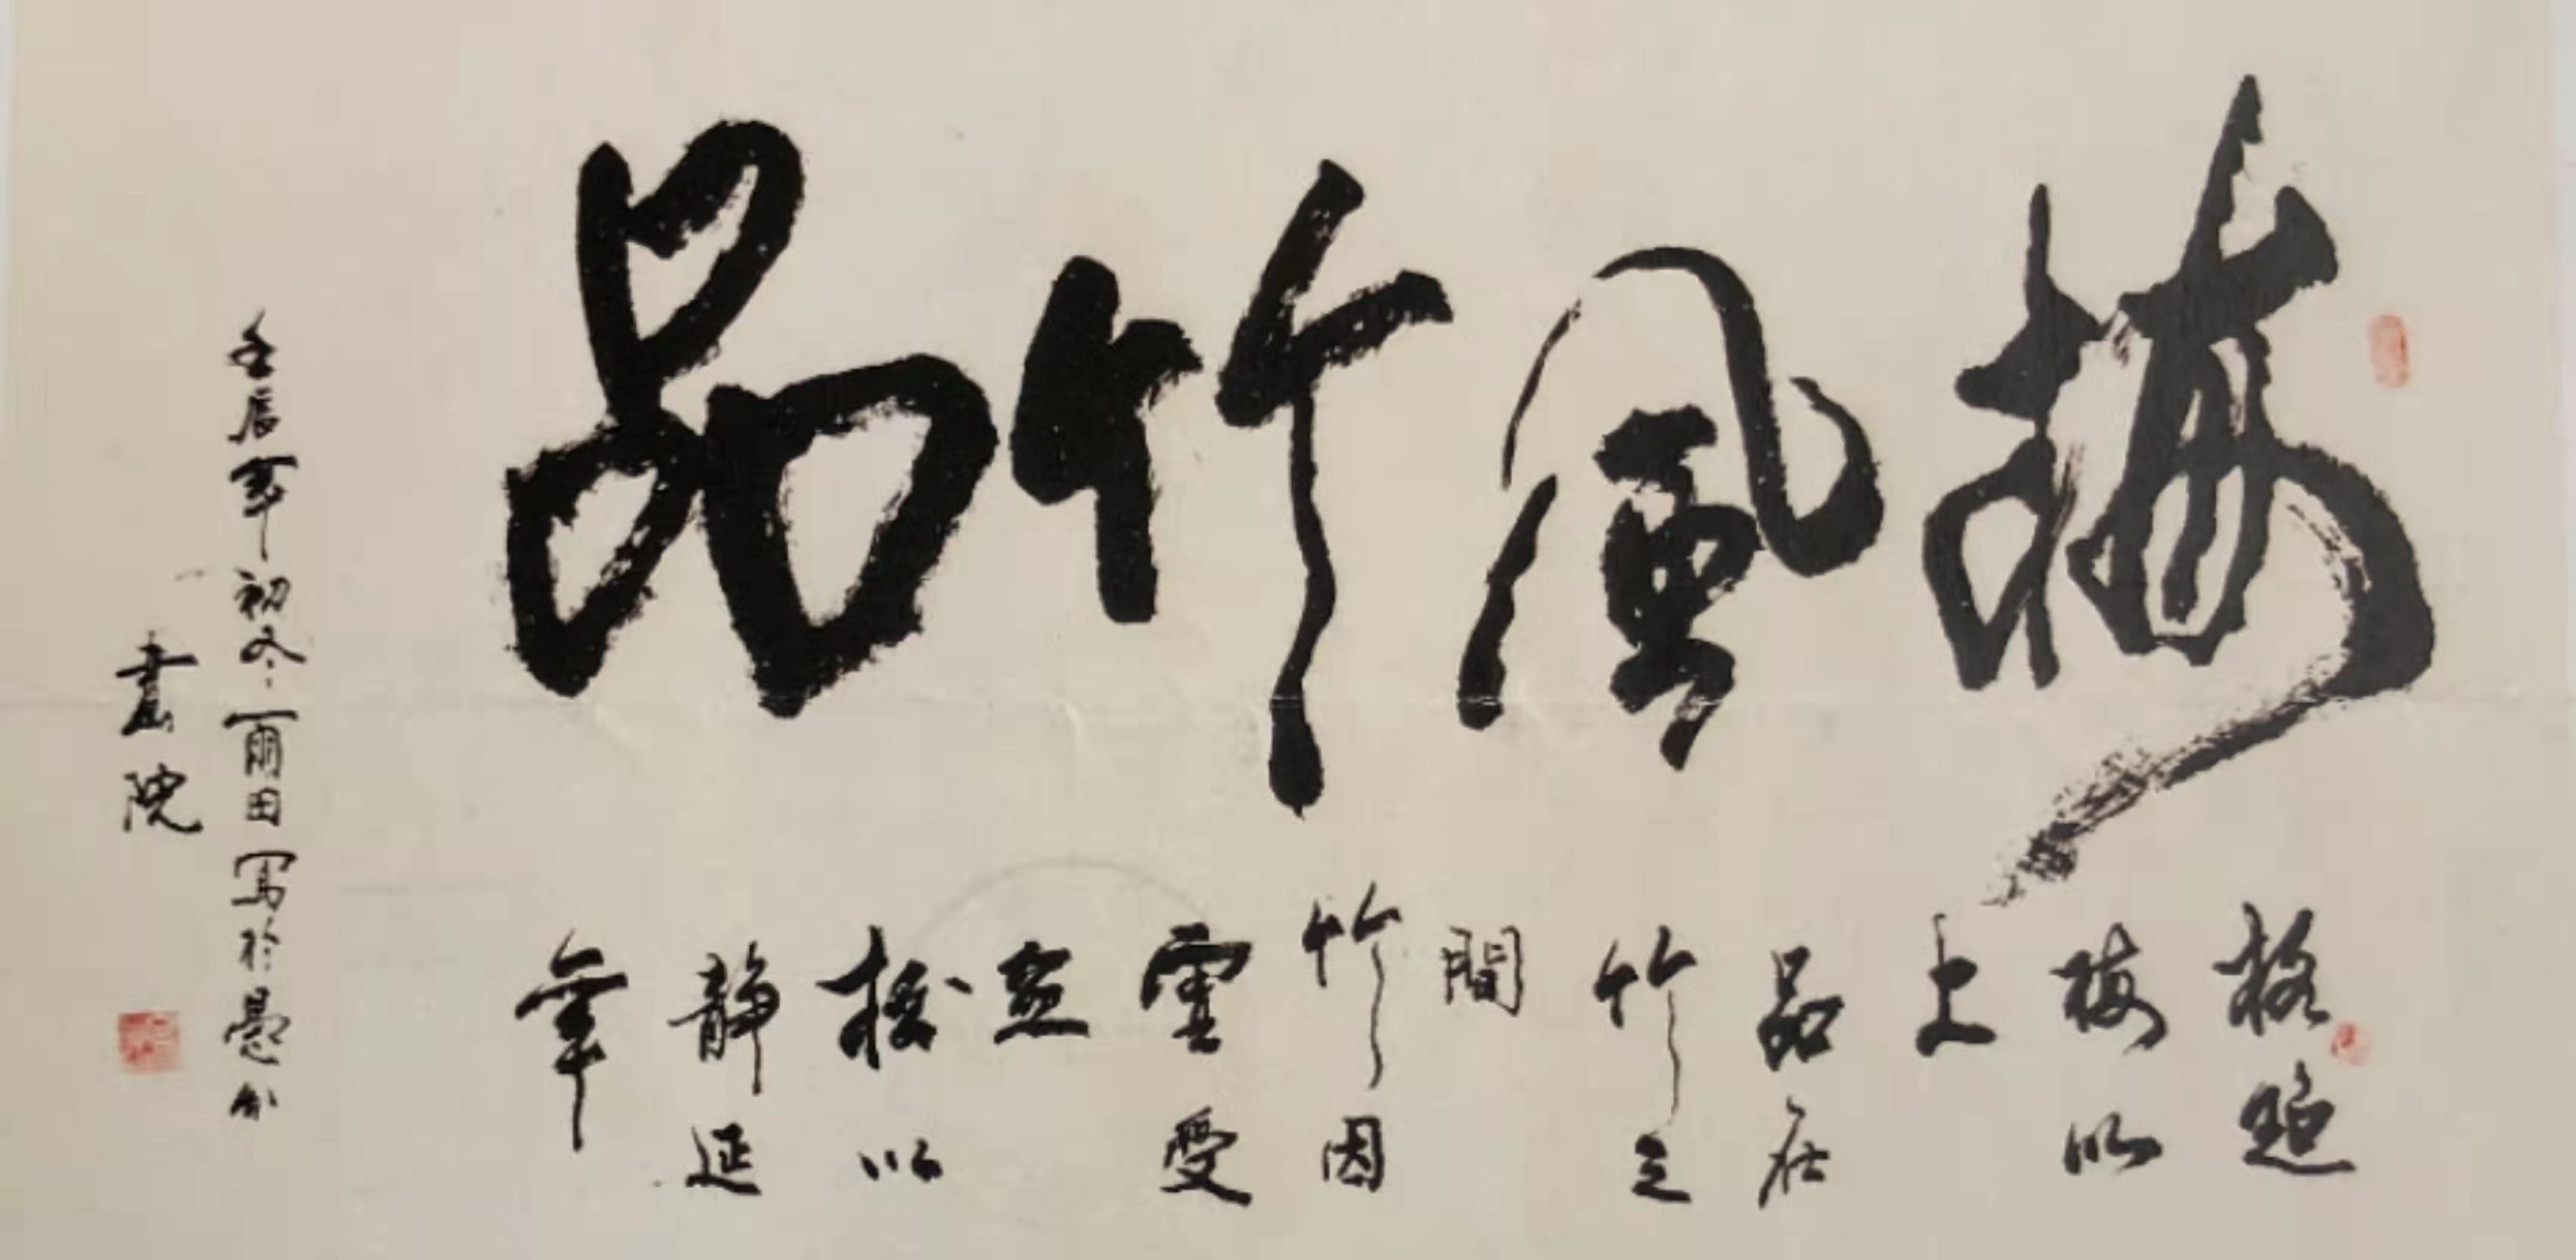 梅風竹品
格超
梅以
上
品在
竹之
間
竹因
虛受
益
松以
静延
年
壬辰年初冬雨田寫於
畫院